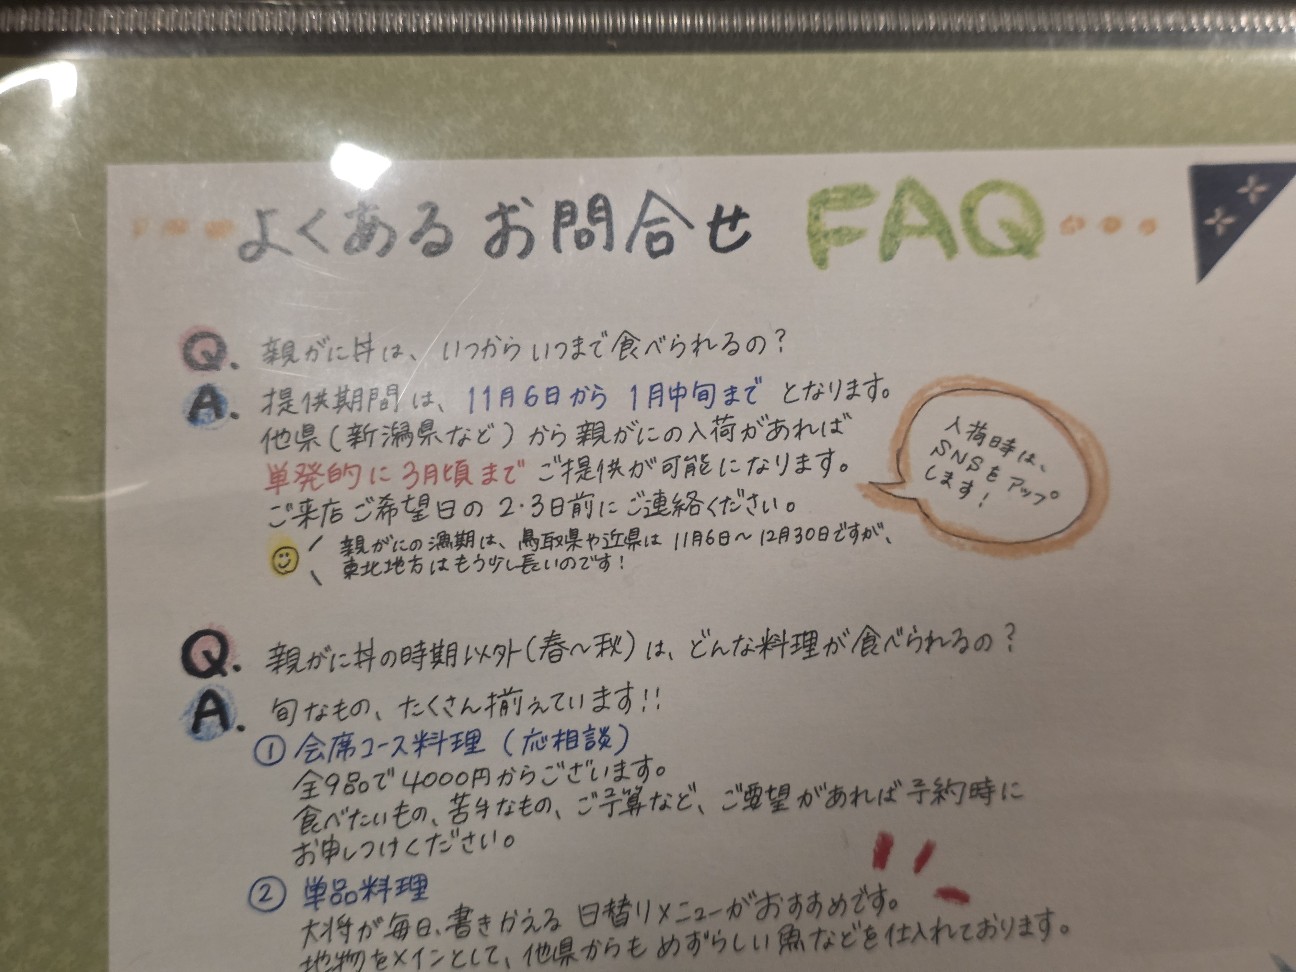 よくある お問合せ FAQ
Q. 親がに丼は、いつからいつまで食べられるの？
A. 提供期間は、11月6日から 1月中旬まで となります。
他県(新潟県など)から親がにの入荷があれば
単発的に3月頃まで ご提供が可能になります。
ご来店ご希望日の 2・3日前にご連絡ください。
親がにの漁期は、鳥取県や近県は 11月6日〜12月30日ですが、
東北地方はもう少し長いのです！
入荷時は、
SNSをアップ
します！
Q. 親がに丼の時期以外(春〜秋)は、どんな料理が食べられるの？
A. 旬なもの、たくさん揃えています!!
① 会席コース料理 (応相談)
全9品で4000円からございます。
食べたいもの、苦手なもの、ご予算など、ご要望があれば予約時に
お申しつけください。
② 単品料理
大将が毎日、書きかえる 日替りメニューがおすすめです。
地物をメインとして、他県からも めずらしい魚などを仕入れております。